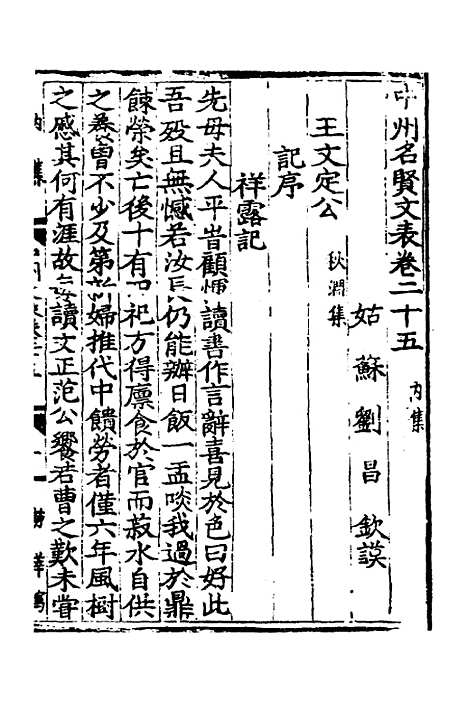 中州名賢文表卷二十五 內集
姑蘇劉昌欽謨
王文定公 秋澗集
記序
祥露記
先母夫人平昔顧惲讀書作言辭喜見於色曰好此
吾歿且無憾若汝長仍能辦日飯一盂啖我過於鼎
餗榮矣亡後十有四祀方得廩食於官而菽水自供
之養曾不少及第新婦推代中饋勞者僅六年風樹
之感其何有涯故每讀文正范公饗若曹之歎未甞